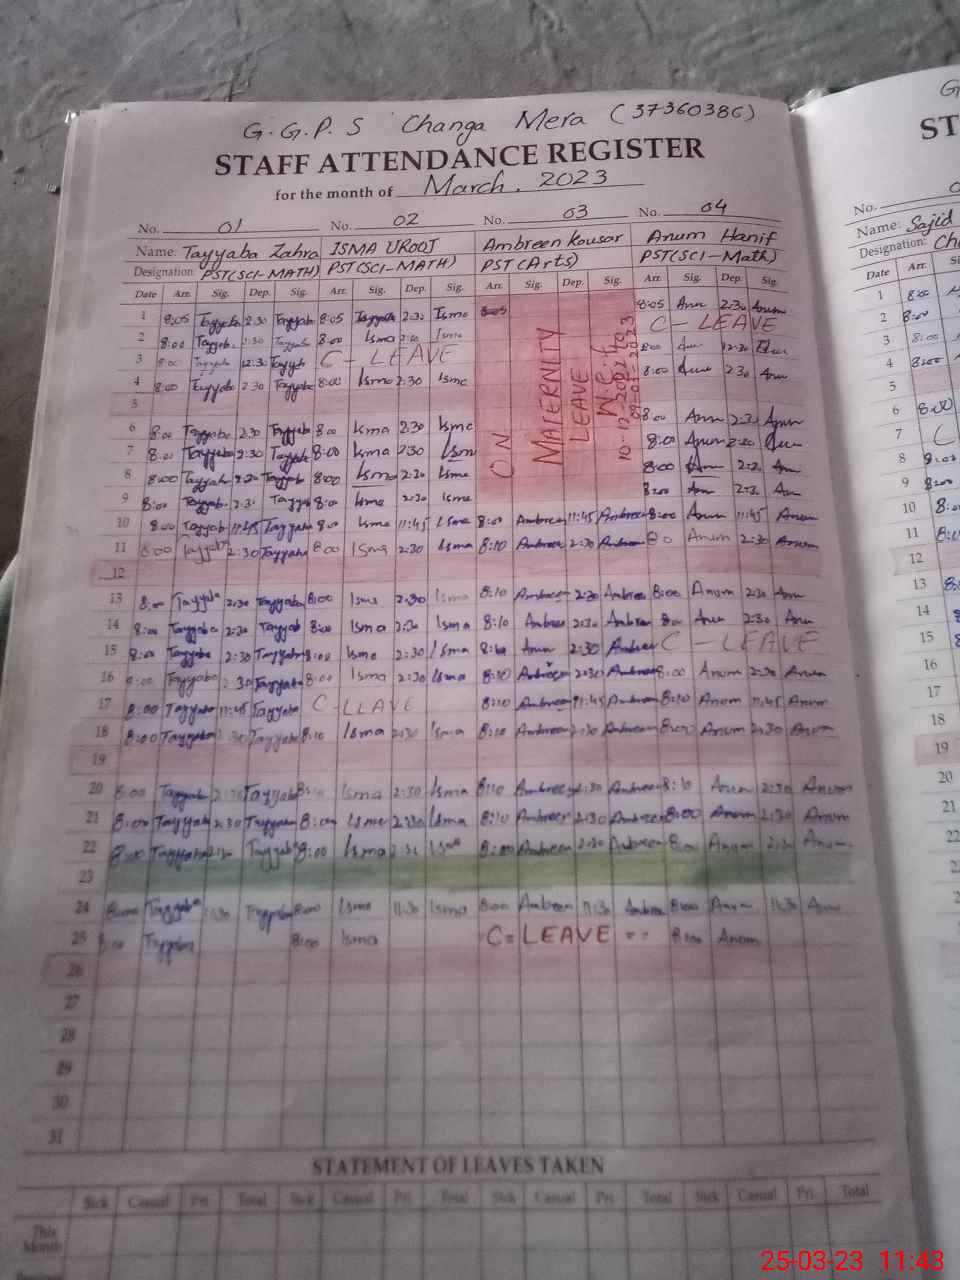 G.G.P.S Changa Mera (37360386)
STAFF ATTENDANCE REGISTER
for the month of March. 2023
No. 01 No. 02 No. 03 No. 04
Name: Tayyaba Zahra ISMA UROOJ Ambreen Kousar Anum Hanif
Designation: PST(SCI-MATH) PST(SCI-MATH) PST(Arts) PST(SCI-Math)
Date Arr. Sig. Dep. Sig. Arr. Sig. Dep. Sig. Arr. Sig. Dep. Sig. Arr. Sig. Dep. Sig.
1 8:05 Tayyaba 2:30 Tayyab 8:05 2:30 Isma 8:05 8:05 Anum 2:30 Anum
2 8:00 Tayyab 2:30 Tayyaba 8:00 Isma 2:30 Isma C-LEAVE
3 8:00 Tayyaba 12:30 Tayyab C-LEAVE 8:00 12:30
4 8:00 Tayyab 2:30 Tayyaba 8:00 Isma 2:30 Isma 8:00 2:30 Anum
5
ON MATERNITY LEAVE W.e.f 10-12-2022 to 09-03-2023
6 8:00 Tayyaba 2:30 Tayyab 8:00 Isma 2:30 Isma 8:00 Anum 2:30 Anum
7 8:00 Tayyaba 2:30 Tayyab 8:00 Isma 2:30 Isma 8:00 Anum 2:30
8 8:00 Tayyab 2:30 Tayyab 8:00 Isma 2:30 Isma 8:00 Anum 2:30 Anum
9 8:00 Tayyab 2:30 Tayyab 8:00 Isma 2:30 Isma 8:00 Anum 2:30 Anum
10 8:00 Tayyab 11:45 Tayyaba 8:00 Isma 11:45 Isma 8:00 Ambreen 11:45 Ambreen 8:00 Anum 11:45 Anum
11 8:00 Tayyab 2:30 Tayyaba 8:00 Isma 2:30 Isma 8:10 Ambreen 2:30 Ambreen Anum 2:30 Anum
12
13 8:00 Tayyaba 2:30 Tayyaba 8:00 Isma 2:30 Isma 8:10 Ambreen 2:30 Ambreen 8:00 Anum 2:30 Anum
14 8:00 Tayyaba 2:30 Tayyab 8:00 Isma 2:30 Isma 8:10 Ambreen 2:30 Ambreen 8:00 Anum 2:30 Anum
15 8:00 Tayyaba 2:30 Tayyaba 8:00 Isma 2:30 Isma 2:30 Ambreen C-LEAVE
16 8:00 Tayyaba 2:30 Tayyaba 8:00 Isma 2:30 Isma 8:10 Ambreen 2:30 Ambreen 8:00 Anum 2:30 Anum
17 8:00 Tayyaba 11:45 Tayyaba C-LEAVE 8:10 Ambreen 11:45 Ambreen 8:10 Anum 11:45 Anum
18 8:00 Tayyaba 2:30 Tayyaba 8:10 Isma 2:30 Isma 8:10 Ambreen 2:30 Ambreen 8:00 Anum 2:30 Anum
19
20 8:00 Tayyab 2:30 Tayyab Isma 2:30 Isma 8:10 Ambreen 2:30 Ambreen 8:10 Anum 2:30 Anum
21 8:00 Tayyab 2:30 Tayyab 8:00 Isma 2:30 Isma 8:10 Ambreen 2:30 Ambreen 8:00 Anum 2:30 Anum
22 8:00 Tayyaba 2:30 Tayyab 8:00 Isma 2:30 Isma 8:00 Ambreen 2:30 Ambreen 8:00 Anum 2:30 Anum
23
24 8:00 Tayyaba 11:30 Tayyaba 8:00 Isma 11:30 Isma 8:00 Ambreen 11:30 Ambreen 8:00 Anum 11:30 Anum
25 8:00 Tayyaba 8:00 Isma C=LEAVE == 8:00 Anum
26
27
28
29
30
31
STATEMENT OF LEAVES TAKEN
Sick Casual Pri. Total Sick Casual Pri. Total Sick Casual Pri. Total Sick Casual Pri. Total
This Month
ST
No.
Name: Sajid
Designation:
Date Arr.
1 8:00
2 8:00
3 8:00
4 8:00
5
6 8:00
7
8
9 8:00
10
11
12
13
14
15
16
17
18
19
20
21
22
23
25-03-23 11:43